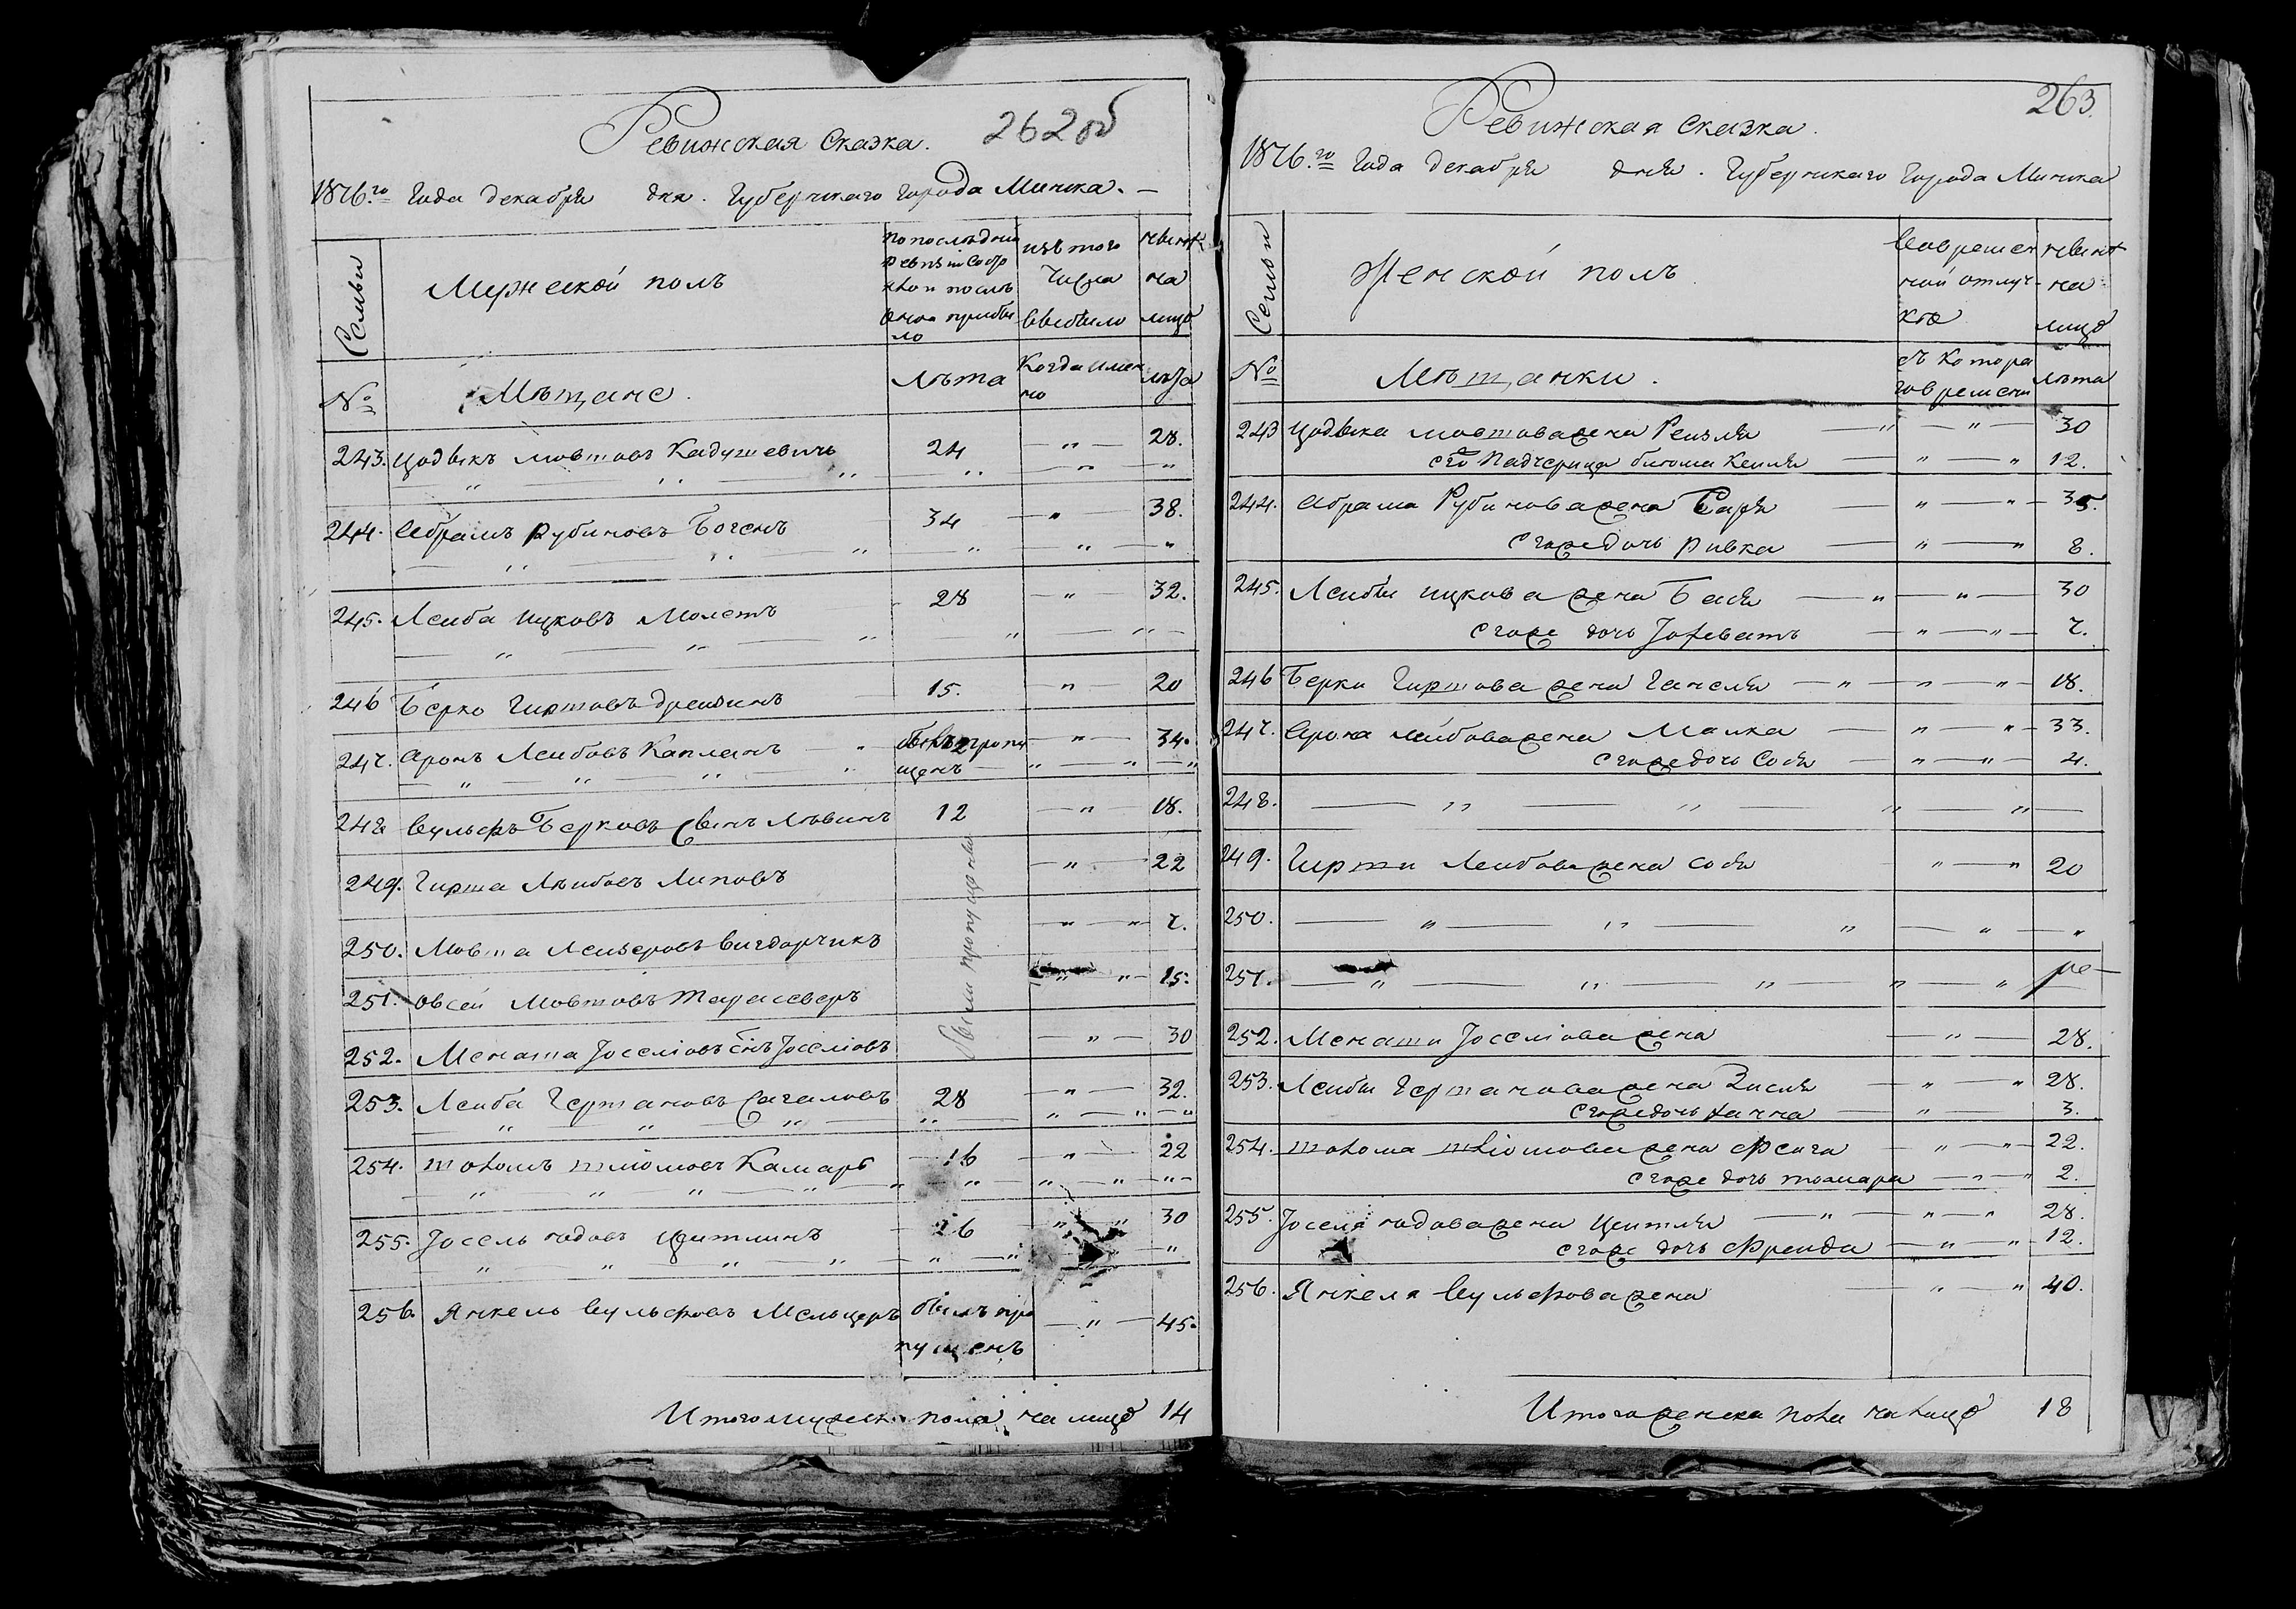 Ревижская Сказка. 262об
1816.го Года декабря дня. Губернскаго города Минска. —
Семьи
Мужескои полъ
по последней ревизіи состояло и после оной прибыло
изъ того числа выбыло
ныне на лицо
№
Мѣщане.
Лѣта
Когда имен но
лѣта
243. Цодыкъ мовшовъ Кадушевичъ 24 — " — 28.
244. Абрамъ Рубиновъ Богенъ 34 — " — 38.
245. Леиба Ицковъ Молетъ 28 — " — 32.
246 Берко Гиршовъ Дреизинъ 15. — " — 20
247. Аронъ Леибовъ Капланъ былъ пропущенъ — " — 34.
248 Вульфъ Берковъ сынъ Левинъ 12 — " — 18.
249. Гирша Леибовъ Липовъ — " — 22
250. Мовша Леизеровъ Вигдорчикъ " — " 7.
были пропущены
251. Овсеи Мовшовъ " — " 15.
252. Менаша Іоселіовъ сынъ Іоселіовъ — " — 30
253. Леиба Гершановъ Сагаловъ 28 — " — 32.
254. шоломъ шліомовъ Камаръ 16 — " — 22
255. Іосель Цеитлинъ 26 " — " 30
256. Янкель Вульфовъ Мельцеръ былъ про — " — 45.
пущенъ
Итого мужеск пола на лицо 14
263.
Ревижская Сказка.
1816.го Года декабря дня. Губернскаго города Минска
Семьи
Женскои полъ
Во временной отлучке
ныне на лицо
№
Мѣщанки.
съ котораго времени
Лѣта
243 Цодыка мовшова жена Реизля — " — " — 30
его Падчерица Кеиля — " — " 12.
244. Абрама Рубинова жена Саря — " — " — 35.
его же дочь Ривка — " — " 8.
245. Леибы ицкова жена Бася — " — " — 30
его же дочь — " — " — 7.
246 Берки Гиршова жена Ганеля — " — " — " — 18.
247. Арона леибова жена Малка — " — " — 33.
его же дочь Сося — " — " — 4.
248. — " — " — " — " —
249. Гирши Леибова жена Сося " — " 20
250. — " — " — " — " — "
251. — " — " — " — " — "
252. Менаши Іоселіова жена — " — 28.
253. Леибы Гершанова жена Зисля — " — " 28.
его же дочь Ханна — " — 3.
254. шолома шліомова жена Феига — " — " — 22.
его же дочь — " — " 2.
255. Іоселя жена Цеитля — " — " — " 28.
его же дочь Фреида — " — " — 12.
256. Янкеля Вульфова жена — " — " 40.
Итого женска пола на лицо 18